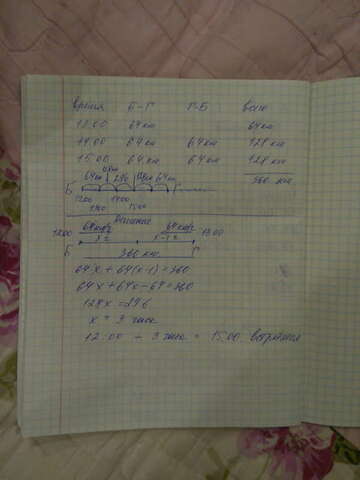 время Б-Г Г-Б всего
13.00 64 км 64 км
14.00 64 км 64 км 128 км
15.00 64 км 64 км 128 км
360 км
64 км 64 км
Б Г
12.00 14.00
13.00 15.00
Решение
12.00 64 км/ч 64 км/ч 13.00
x x-1
360 км
Б Г
64x + 64(x-1) = 360
64x + 64x - 64 = 360
128x = 296
x = 3 часа
12.00 + 3 часа = 15.00